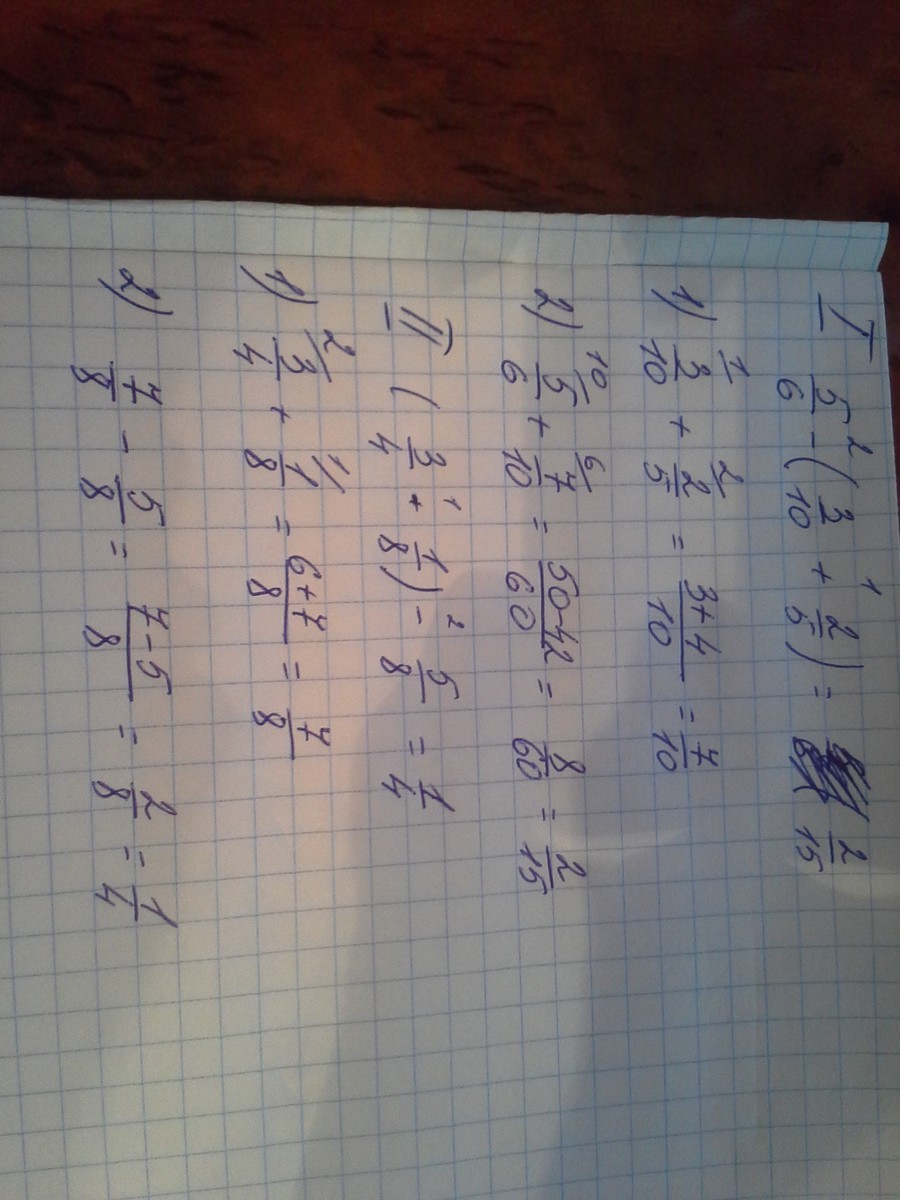 I 5/6 -² (3/10 +¹ 2/5) = 2/15
1) ¹⁄3/10 + ²⁄2/5 = 3+4/10 = 7/10
2) ¹⁰⁄5/6 + ⁶⁄7/10 = 50-42/60 = 8/60 = 2/15
II (3/4 +¹ 1/8) -² 5/8 = 1/4
1) ²⁄3/4 + ¹⁄1/8 = 6+7/8 = 7/8
2) 7/8 - 5/8 = 7-5/8 = 2/8 = 1/4